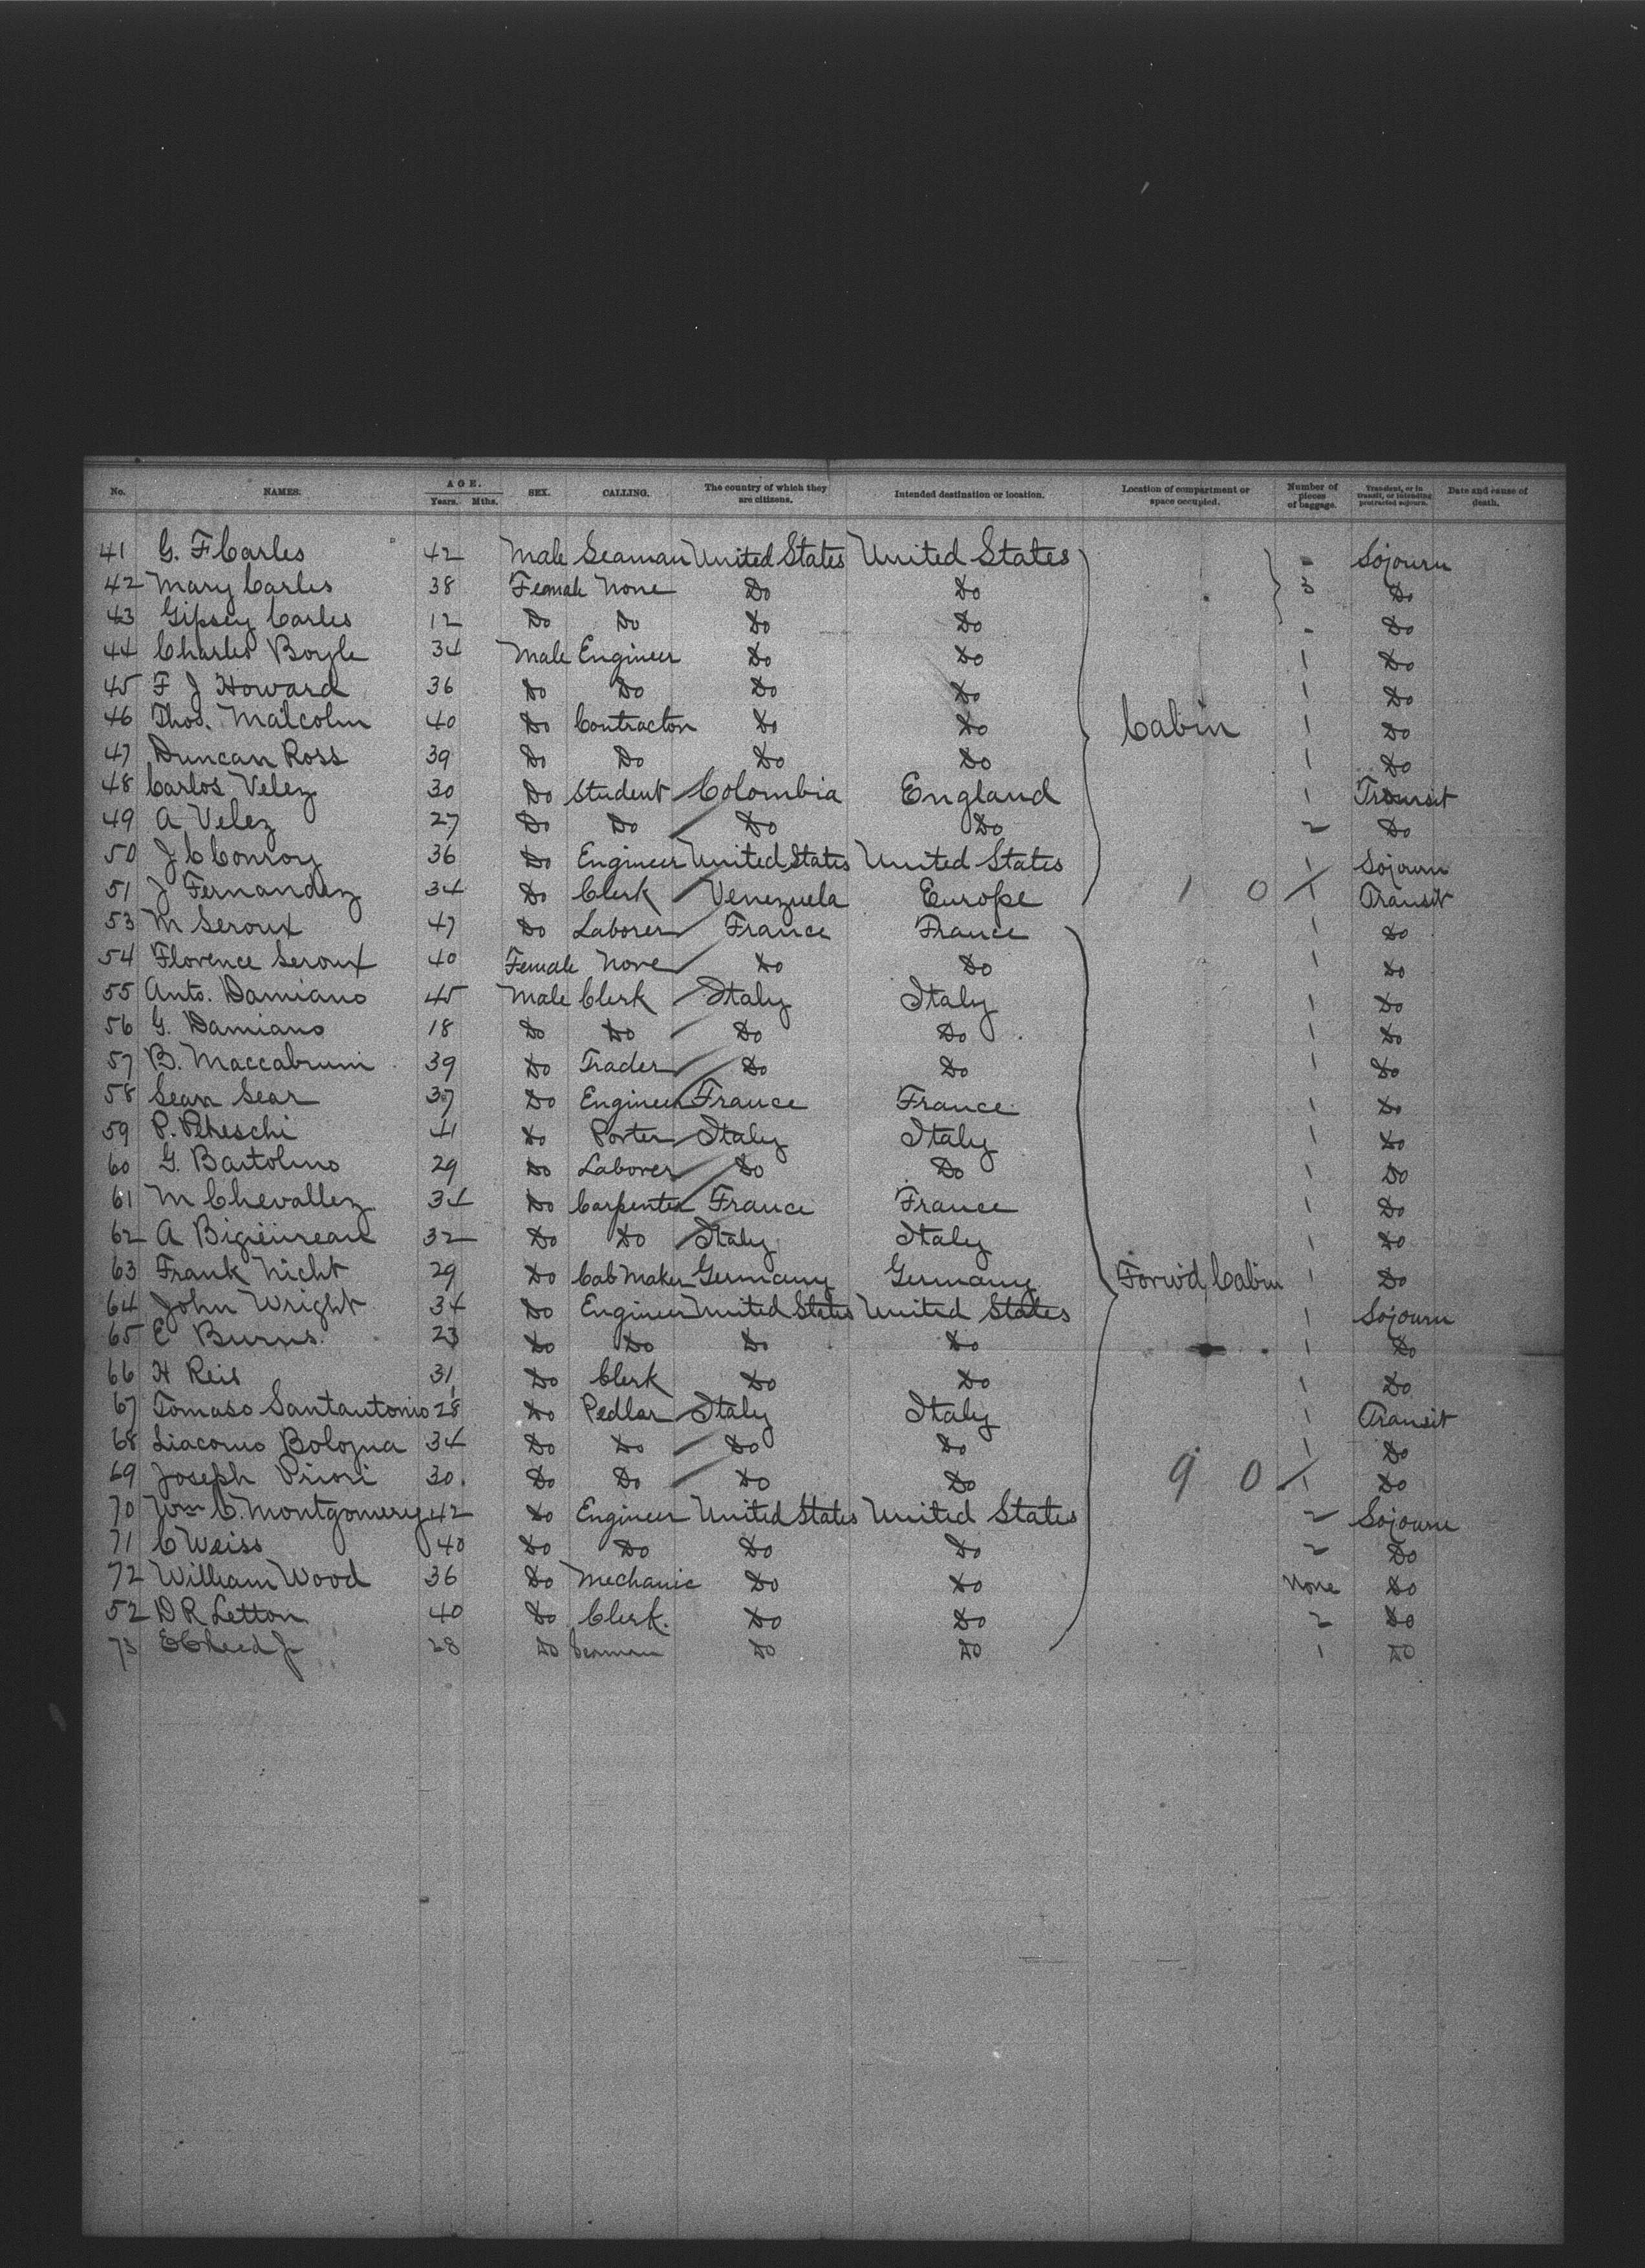 No. NAMES. AGE. Years. Mths. SEX. CALLING. The country of which they are citizens. Intended destination or location. Location of compartment or space occupied. Number of pieces of baggage. Transient, or in transit, or intending protracted sojourn. Date and cause of death.
41 G. F Carles 42 Male Seaman United States United States - Sojourn
42 Mary Carles 38 Female None Do Do 3 Do
43 Gipsey Carles 12 Do Do Do Do - Do
44 Charles Boyle 34 Male Engineer Do Do 1 Do
45 F J Howard 36 Do Do Do Do 1 Do
46 Thos. Malcolm 40 Do Contractor Do Do Cabin 1 Do
47 Duncan Ross 39 Do Do Do Do 1 Do
48 Carlos Velez 30 Do Student Colombia England 1 Transit
49 A Velez 27 Do Do Do Do 2 Do
50 J C Conroy 36 Do Engineer United States United States 1 Sojourn
51 J Fernandez 34 Do Clerk Venezuela Europe 1 0 1 Transit
53 M Seroux 47 Do Laborer France France 1 Do
54 Florence Seroux 40 Female None Do Do 1 Do
55 Anto. Damiano 45 Male Clerk Italy Italy 1 Do
56 G. Damiano 18 Do Do Do Do 1 Do
57 B. Maccabruni 39 Do Trader Do Do 1 Do
58 Sean Sear 37 Do Engineer France France 1 Do
59 P. 41 Do Porter Italy Italy 1 Do
60 G. Bartolino 29 Do Laborer Do Do 1 Do
61 M Chevallez 34 Do Carpenter France France 1 Do
62 A 32 Do Do Italy Italy 1 Do
63 Frank Nicht 29 Do Cab Maker Germany Germany Forw'd Cabin 1 Do
64 John Wright 34 Do Engineer United States United States 1 Sojourn
65 E Burns. 23 Do Do Do Do 1 Do
66 H Reis 31 Do Clerk Do Do 1 Do
67 Tomaso Santantonio 28 Do Pedlar Italy Italy 1 Transit
68 Liacomo Bologna 34 Do Do Do Do 1 Do
69 Joseph Priori 30. Do Do Do Do 9 0 1 Do
70 Wm C. Montgomery 42 Do Engineer United States United States 2 Sojourn
71 C Weiss 40 Do Do Do Do 2 Do
72 William Wood 36 Do Mechanic Do Do None Do
52 D R Letton 40 Do Clerk. Do Do 2 Do
73 28 Do Seaman Do Do 1 Do